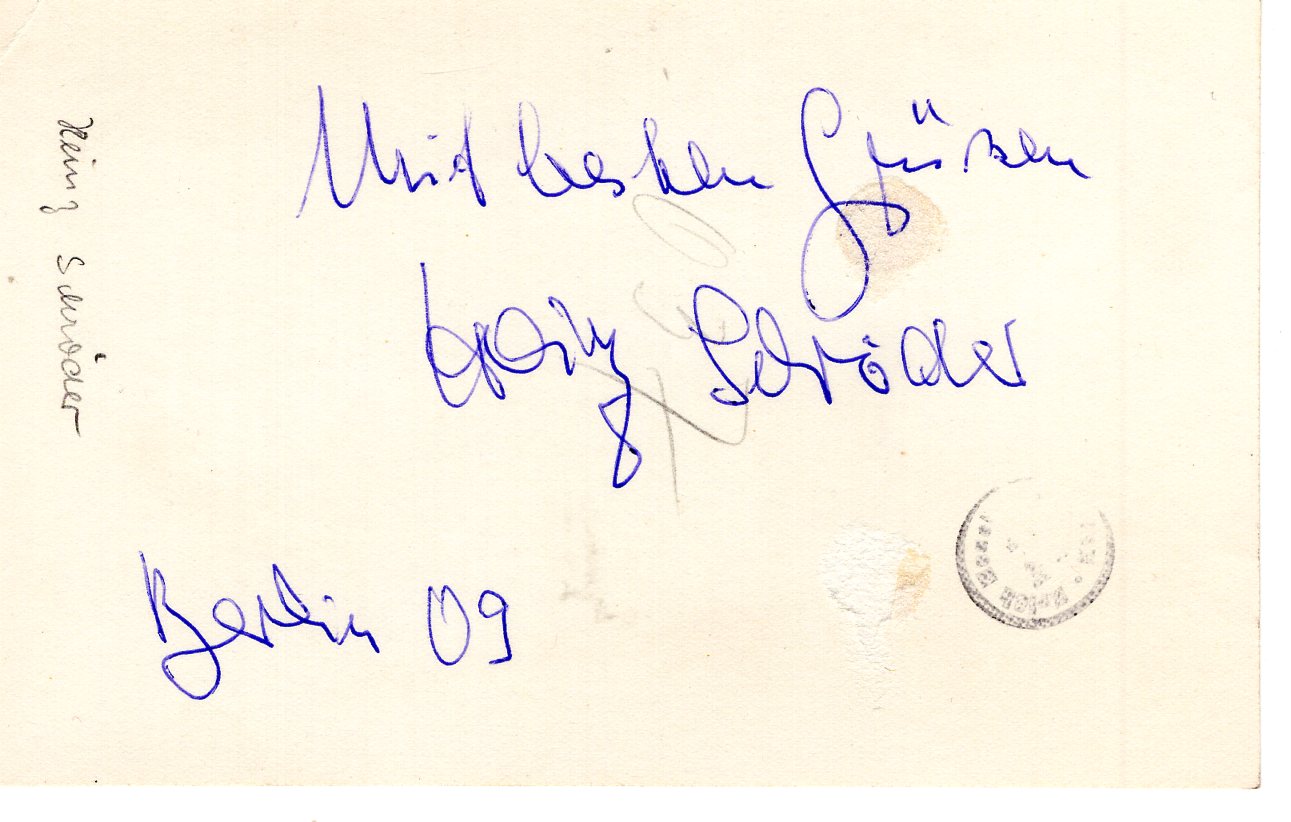 Mit besten Grüssen
Heinz Schröder
Berlin 09
Heinz Schröder